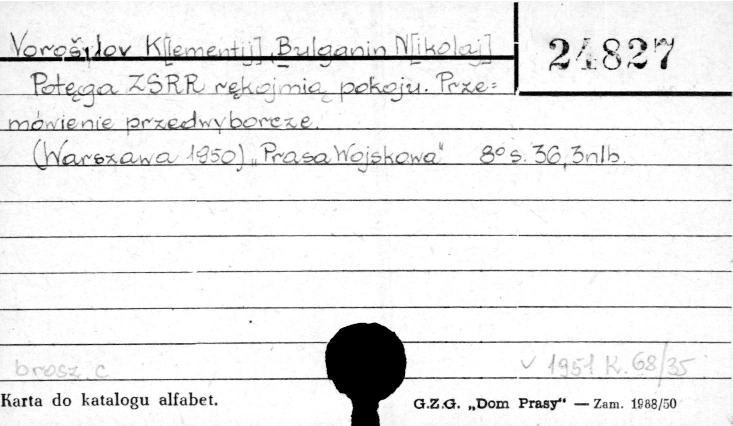 Vorošilov K[lementij], Bulganin N[ikolaj]
24827
Potęga ZSRR rękojmią pokoju. Prze=
mówienie przedwyborcze.
(Warszawa 1950) „Prasa Wojskowa" 8° s. 36, 3 nlb.
brosz. c
v 1951 K. 68/35
Karta do katalogu alfabet.
G.Z.G. „Dom Prasy" — Zam. 1988/50